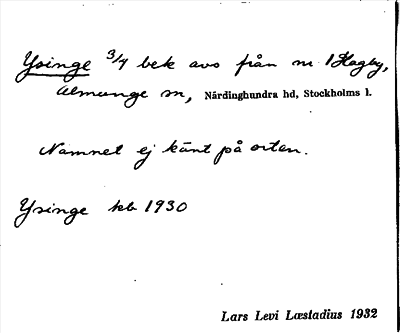 Ysinge 3/4 bek avs från nr 1 Hagby,
Almunge sn, Närdinghundra hd, Stockholms l.
Namnet ej känt på orten.
Ysinge kb 1930
Lars Levi Læstadius 1932